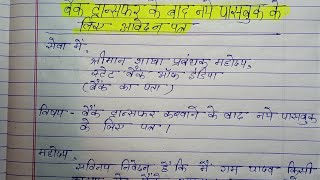 बैंक ट्रान्सफर के बाद नये पासबुक के
लिए आवेदन पत्र
सेवा में,
श्रीमान शाखा प्रबंधक महोदय,
स्टेट बैंक ऑफ इंडिया
(बैंक का पता)
विषय - बैंक ट्रान्सफर करवाने के बाद नये पासबुक
के लिए पत्र।
महोदय,
सविनय निवेदन है कि मैं राम यादव किसी